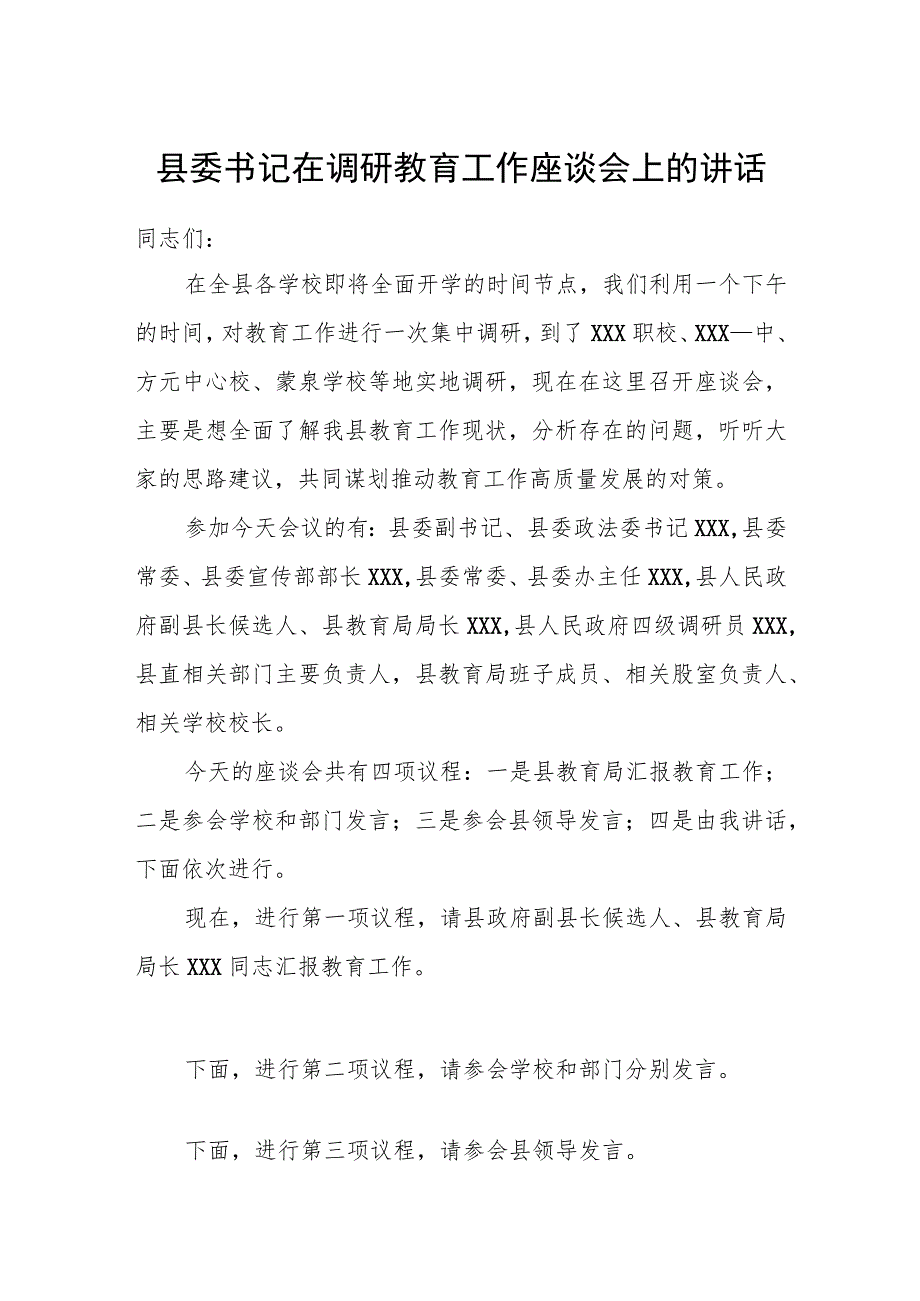 县委书记在调研教育工作座谈会上的讲话
同志们：
在全县各学校即将全面开学的时间节点，我们利用一个下午
的时间，对教育工作进行一次集中调研，到了 XXX 职校、XXX—中、
方元中心校、蒙泉学校等地实地调研，现在在这里召开座谈会，
主要是想全面了解我县教育工作现状，分析存在的问题，听听大
家的思路建议，共同谋划推动教育工作高质量发展的对策。
参加今天会议的有：县委副书记、县委政法委书记 XXX,县委
常委、县委宣传部部长 XXX,县委常委、县委办主任 XXX,县人民政
府副县长候选人、县教育局局长 XXX,县人民政府四级调研员 XXX,
县直相关部门主要负责人，县教育局班子成员、相关股室负责人、
相关学校校长。
今天的座谈会共有四项议程：一是县教育局汇报教育工作；
二是参会学校和部门发言；三是参会县领导发言；四是由我讲话，
下面依次进行。
现在，进行第一项议程，请县政府副县长候选人、县教育局
局长 XXX 同志汇报教育工作。
下面，进行第二项议程，请参会学校和部门分别发言。
下面，进行第三项议程，请参会县领导发言。